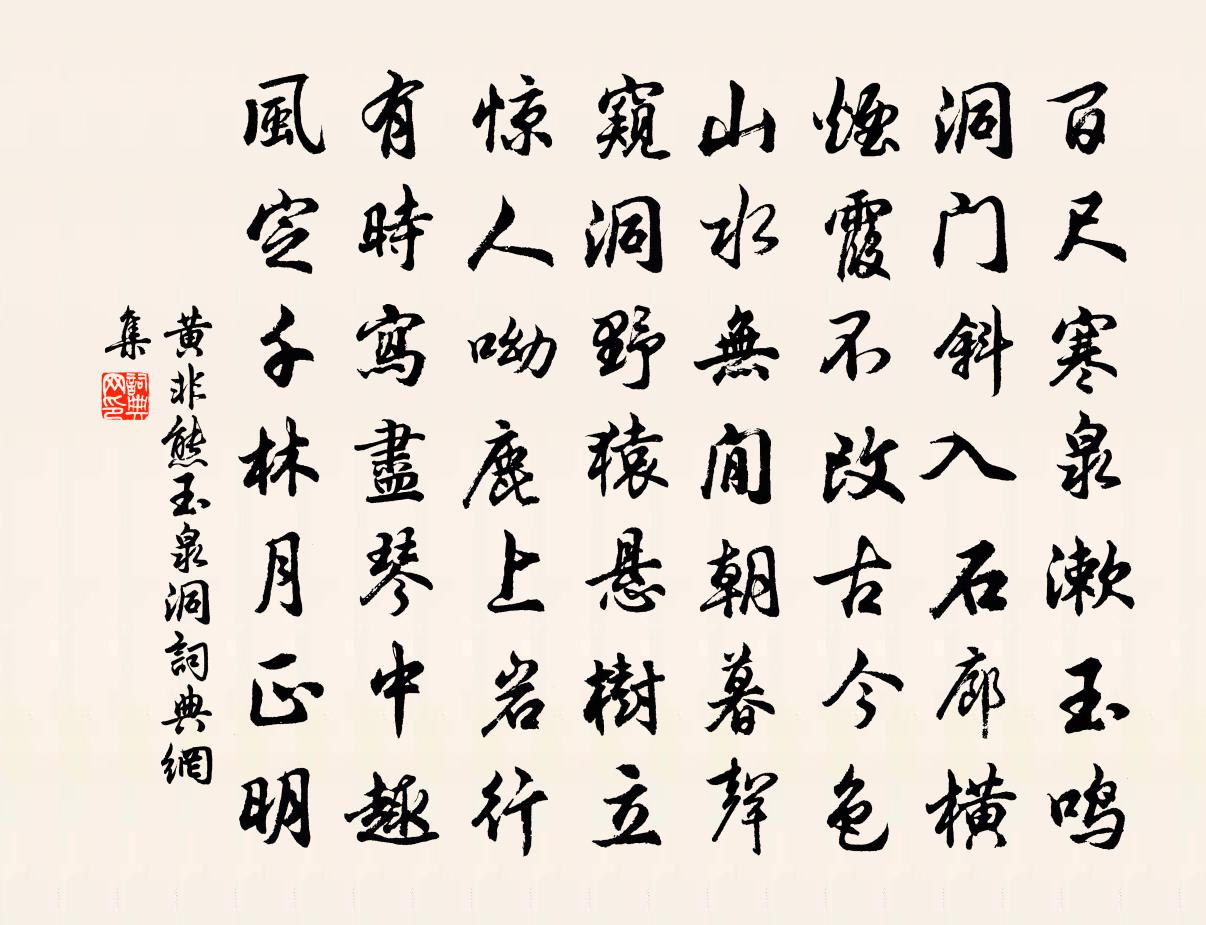 百尺寒泉漱玉鸣
洞门斜入石廊横
煙霞不改古今色
山水無间朝暮聲
窺洞野猿悬樹立
惊人呦鹿上岩行
有時寫盡琴中趣
風定千林月正明
黄非熊玉泉洞詞典網
集
詞典网印